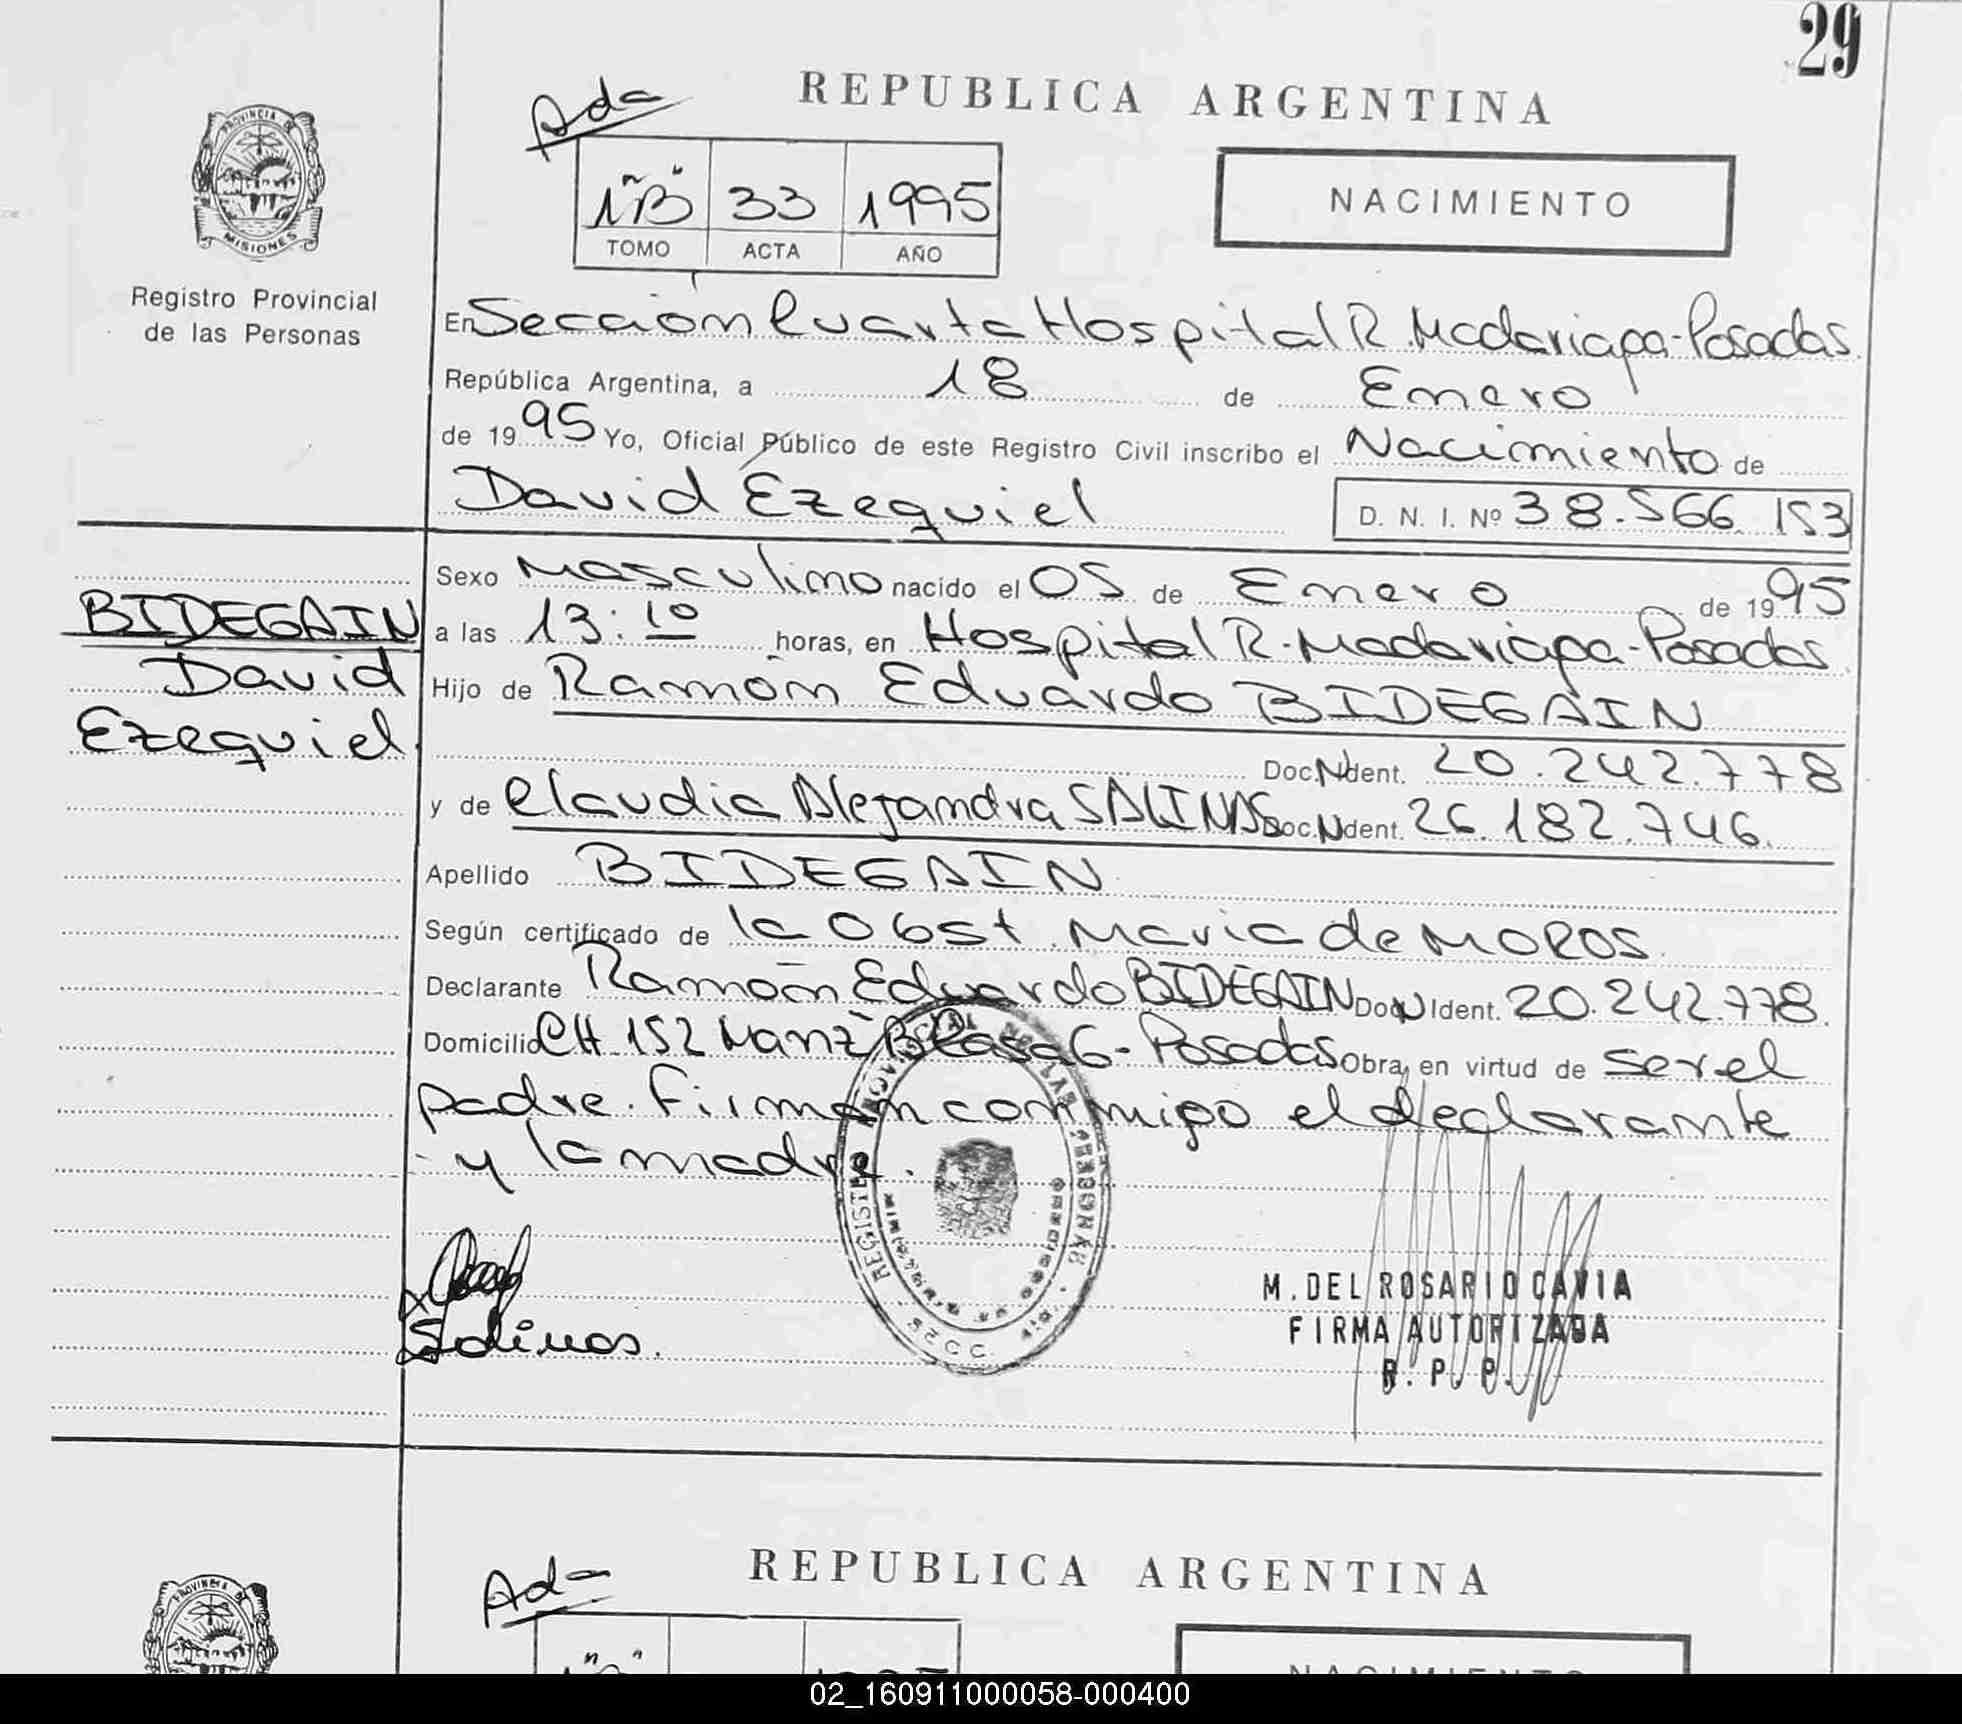 29
REPUBLICA ARGENTINA
Ada
1"B" 33 1995
TOMO ACTA AÑO
NACIMIENTO
PROVINCIA DE
MISIONES
Registro Provincial
de las Personas
En Sección Cuarta Hospital R. Madariaga-Posadas
República Argentina, a 18 de Enero
de 1995 Yo, Oficial Público de este Registro Civil inscribo el Nacimiento de
David Ezequiel D. N. I. Nº 38.566.153
BIDEGAIN
David
Ezequiel
Sexo Masculino nacido el 05 de Enero de 1995
a las 13:10 horas, en Hospital R. Madariaga-Posadas
Hijo de Ramón Eduardo BIDEGAIN
Doc. N Ident. 20.242.778
y de Claudia Alejandra SALINAS Doc. N Ident. 26.182.746.
Apellido BIDEGAIN
Según certificado de la Obst. Maria de MOROS
Declarante Ramón Eduardo BIDEGAIN Doc. N Ident. 20.242.778
Domicilio CH 152 Manz B Casa 6 - Posadas Obra en virtud de ser el
padre. Firman conmigo el declarante
y la madre.
REGISTRO PERSONAS
Salinas.
M. DEL ROSARIO CAVIA
FIRMA AUTORIZADA
R. P. P.
REPUBLICA ARGENTINA
Ada
PROVINCIA DE
NACIMIENTO
02_160911000058-000400